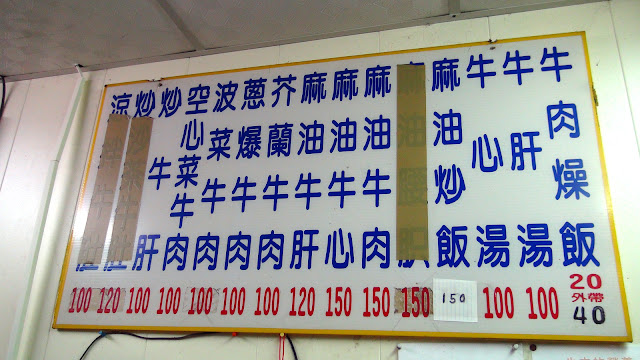 牛肉燥飯 20 外帶 40
牛肝湯 100
牛心湯 100
麻油炒飯 150
150
麻油牛肉 150
麻油牛心 150
麻油牛肝 120
芥蘭牛肉 100
蔥爆牛肉 100
波菜牛肉 100
空心菜牛肉 100
炒牛肝 100
炒 120
涼 100